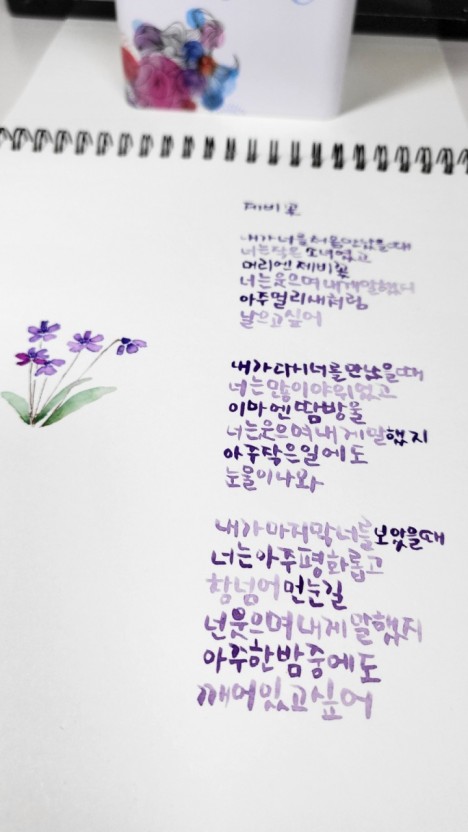 제비꽃
내가 너를 처음 만났을때
너는 작은 소녀였고
머리엔 제비꽃
너는 웃으며 내게 말했지
아주 멀리 새처럼
날으고 싶어
내가 다시 너를 만났을때
너는 많이 야위었고
이마엔 땀방울
너는 웃으며 내게 말했지
아주 작은 일에도
눈물이 나와
내가 마지막 너를 보았을때
너는 아주 평화롭고
창넘어 먼 눈길
넌 웃으며 내게 말했지
아주 한밤중에도
깨어있고 싶어